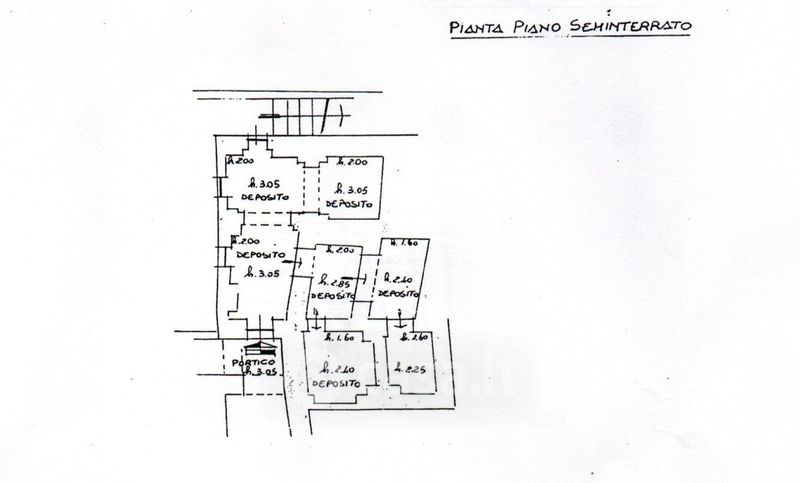 PIANTA PIANO SEMINTERRATO
h.2.00
h.3.05
DEPOSITO
h.2.00
h.3.05
DEPOSITO
h.2.00
DEPOSITO
h.3.05
h.2.00
h.2.85
DEPOSITO
h.1.60
h.2.40
DEPOSITO
PORTICO
h.3.05
h.1.60
h.2.40
DEPOSITO
h.1.60
h.2.25